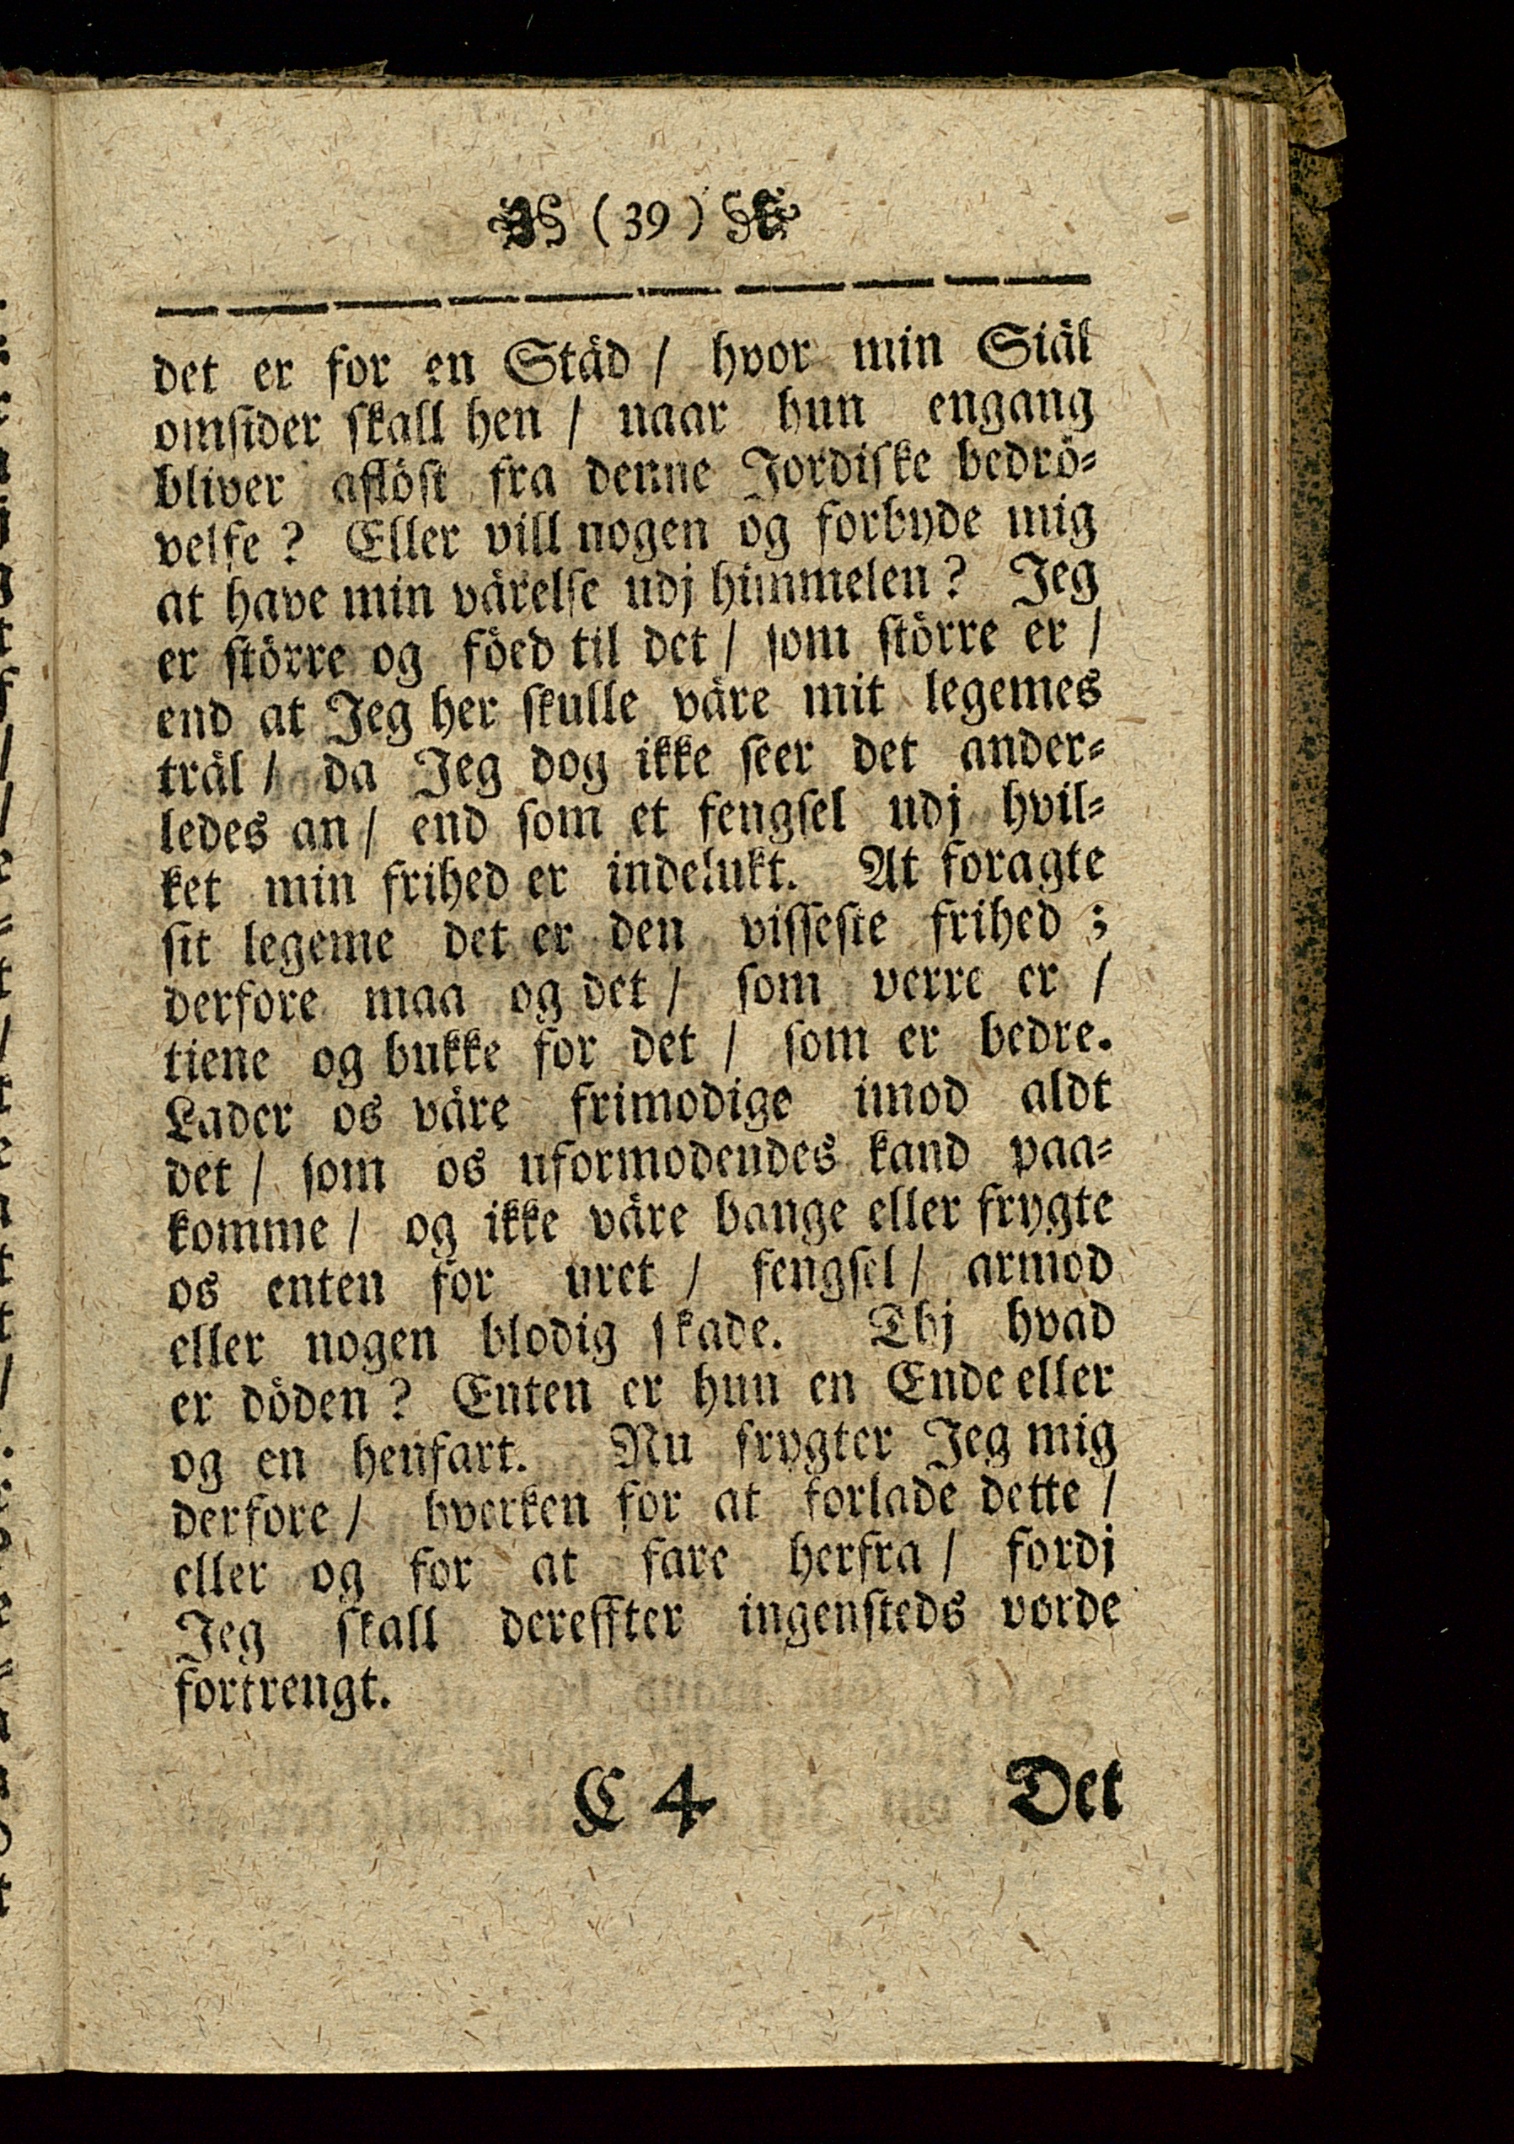 ( 39 )
det er for en Städ / hvor min Siäl
omsider skall hen / naar hun engang
bliver aflöst fra denne Jordiske bedrö-
velse? Eller vill nogen og forbyde mig
at have min värelse udj himmelen? Jeg
er större og föed til det / som större er /
end at Jeg her skulle väre mit legemes
träl / da Jeg dog ikke seer det ander-
ledes an / end som et fengsel udj hvil-
ket min frihed er indelukt. At foragte
sit legeme det er den visseste frihed;
derfore maa og det / som verre er /
tiene og bukke for det / som er bedre.
Lader os väre frimodige imod aldt
det / som os uformodendes kand paa-
komme / og ikke väre bange eller frygte
os enten for uret / fengsel / armod
eller nogen blodig skade. Thj hvad
er döden? Enten er hun en Ende eller
og en henfart. Nu frygter Jeg mig
derfore / hverken for at forlade dette /
eller og for at fare herfra / fordj
Jeg skall dereffter ingensteds vorde
fortrengt.
C 4 Det